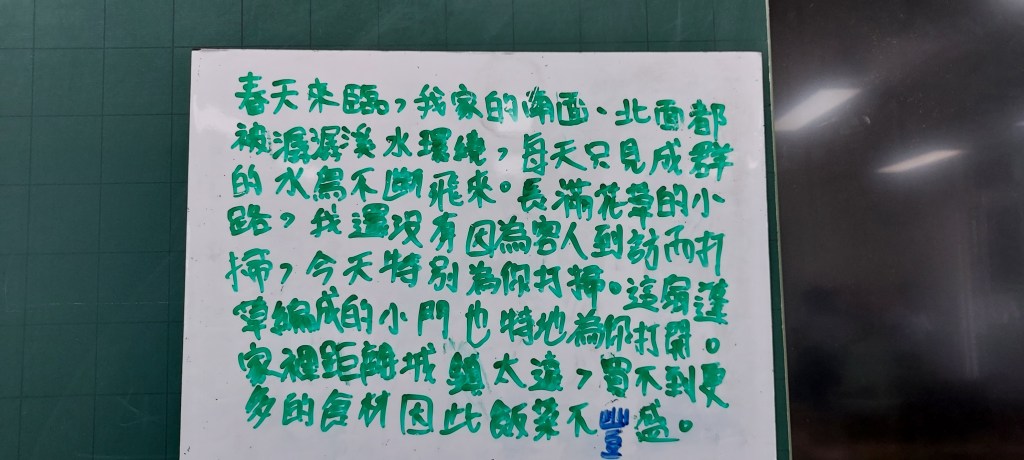 春天來臨，我家的南面、北面都
被潺潺溪水環繞，每天只見成群
的水鳥不斷飛來。長滿花草的小
路，我還沒有因為客人到訪而打
掃，今天特別為你打掃。這扇蓬
草編成的小門也特地為你打開。
家裡距離城鎮太遠，買不到更
多的食材因此飯菜不豐盛。